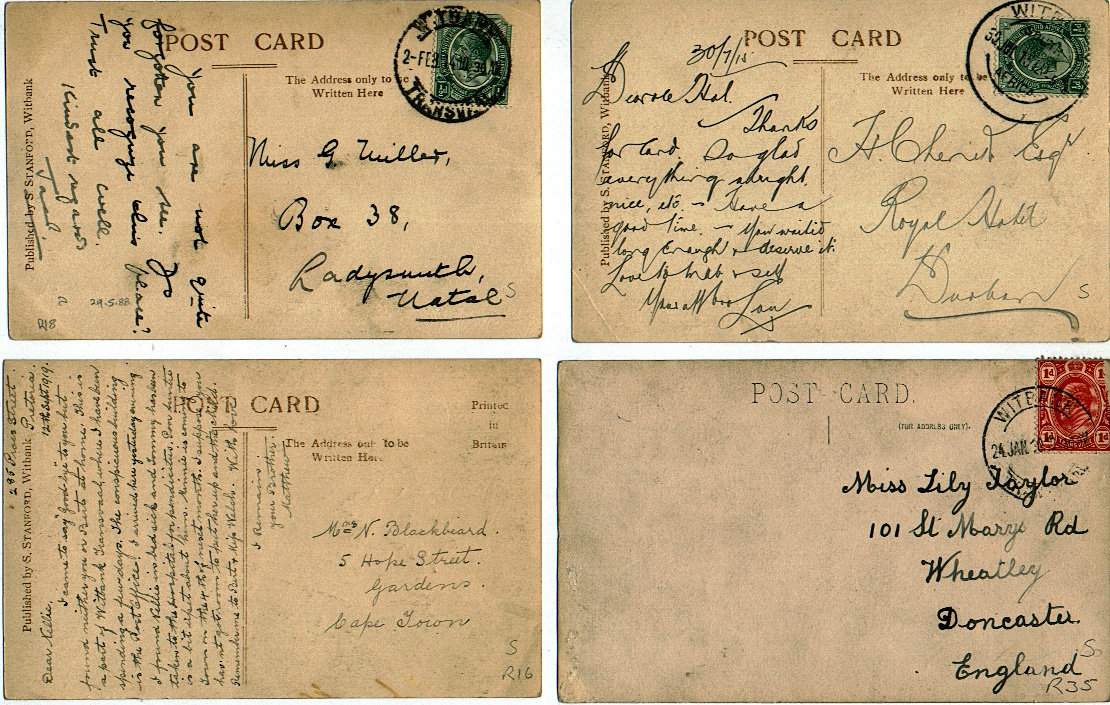 POST CARD
The Address only to be
Written Here
Published by S. STANFORD, Witbank
WITBANK
2-FEB
TRANSVAAL
You are not quite
forgotten you see. Do
you recognize this place?
Trust all well.
Kindest regards
Miss G Miller,
Box 38,
Ladysmith,
Natal
29.5.88
R18
S
POST CARD
The Address only to be
Written Here
Published by S. STANFORD, Witbank
30/7/15
Hal.
Thanks
for card. So glad
everything alright
nice, etc. - Have a
good time. - You waited
long enough & deserve it.
Love to & self
Royal Hotel
Durban
S
POST CARD
Printed
in
Britain
The Address only to be
Written Here
Published by S. STANFORD, Witbank
Street
Pretoria.
12th Sept 1919.
Dear Nellie,
I came to say "Good bye" to you but
found neither you or Bert at home. This is
a part of Witbank Transvaal where I have been
spending a few days. The conspicuous building
is the Post Office. I arrived here yesterday evening
I found Nellie in bed sick and Tommy has been
taken to the hospital for
is a bit upset about him. Minnie is coming to
town on the 4th of next month. I suppose you
has not got room to put her up and the child.
Remember me to Bert & Welch. With love
I Remain
your Brother
Matthew
Mrs N. Blackbeard.
5 Hope Street.
Gardens.
Cape Town
S
R16
POST CARD.
(FOR ADDRESS ONLY).
WITBANK
24 JAN
1d
1d
Miss Lily Taylor
101 St Marys Rd
Wheatley
Doncaster.
England
S
R35